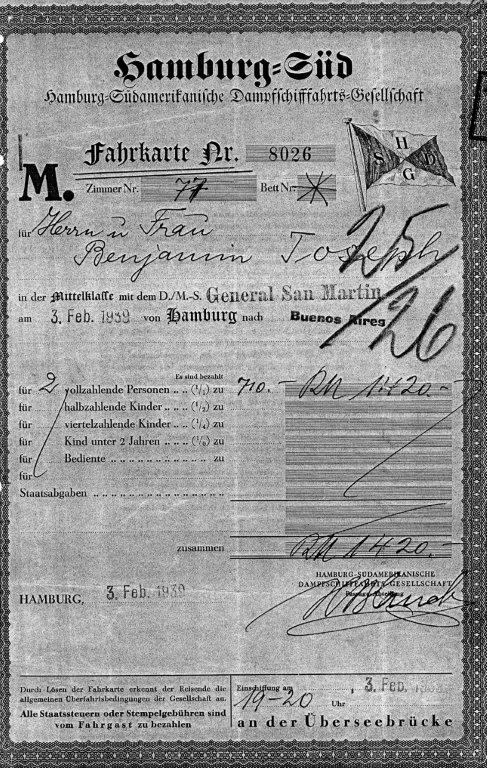 Hamburg-Süd
Hamburg-Südamerikanische Dampfschifffahrts-Gesellschaft
H
S D
G
M. Fahrkarte Nr. 8026
Zimmer Nr. 77 Bett Nr.
für Herrn u Frau
Benjamin Joseph
25/26
in der Mittelklasse mit dem D./M.-S. General San Martin
am 3. Feb. 1939 von Hamburg nach Buenos Aires
Es sind bezahlt
für 2 vollzahlende Personen .. .. (1/1) zu 710.- RM 1420.-
für halbzahlende Kinder .. .. (1/2) zu
für viertelzahlende Kinder .. .. (1/4) zu
für Kind unter 2 Jahren .. .. zu
für Bediente .. .. .. .. .. .. .. .. zu
für
Staatsabgaben .. .. .. .. .. .. .. .. ..
zusammen RM 1420.-
HAMBURG-SÜDAMERIKANISCHE
DAMPFSCHIFFFAHRTS-GESELLSCHAFT
HAMBURG, 3. Feb. 1939
Durch Lösen der Fahrkarte erkennt der Reisende die
allgemeinen Überfahrtsbedingungen der Gesellschaft an.
Alle Staatssteuern oder Stempelgebühren sind
vom Fahrgast zu bezahlen
Einschiffung am 3. Feb. 1939
19-20 Uhr
an der Überseebrücke